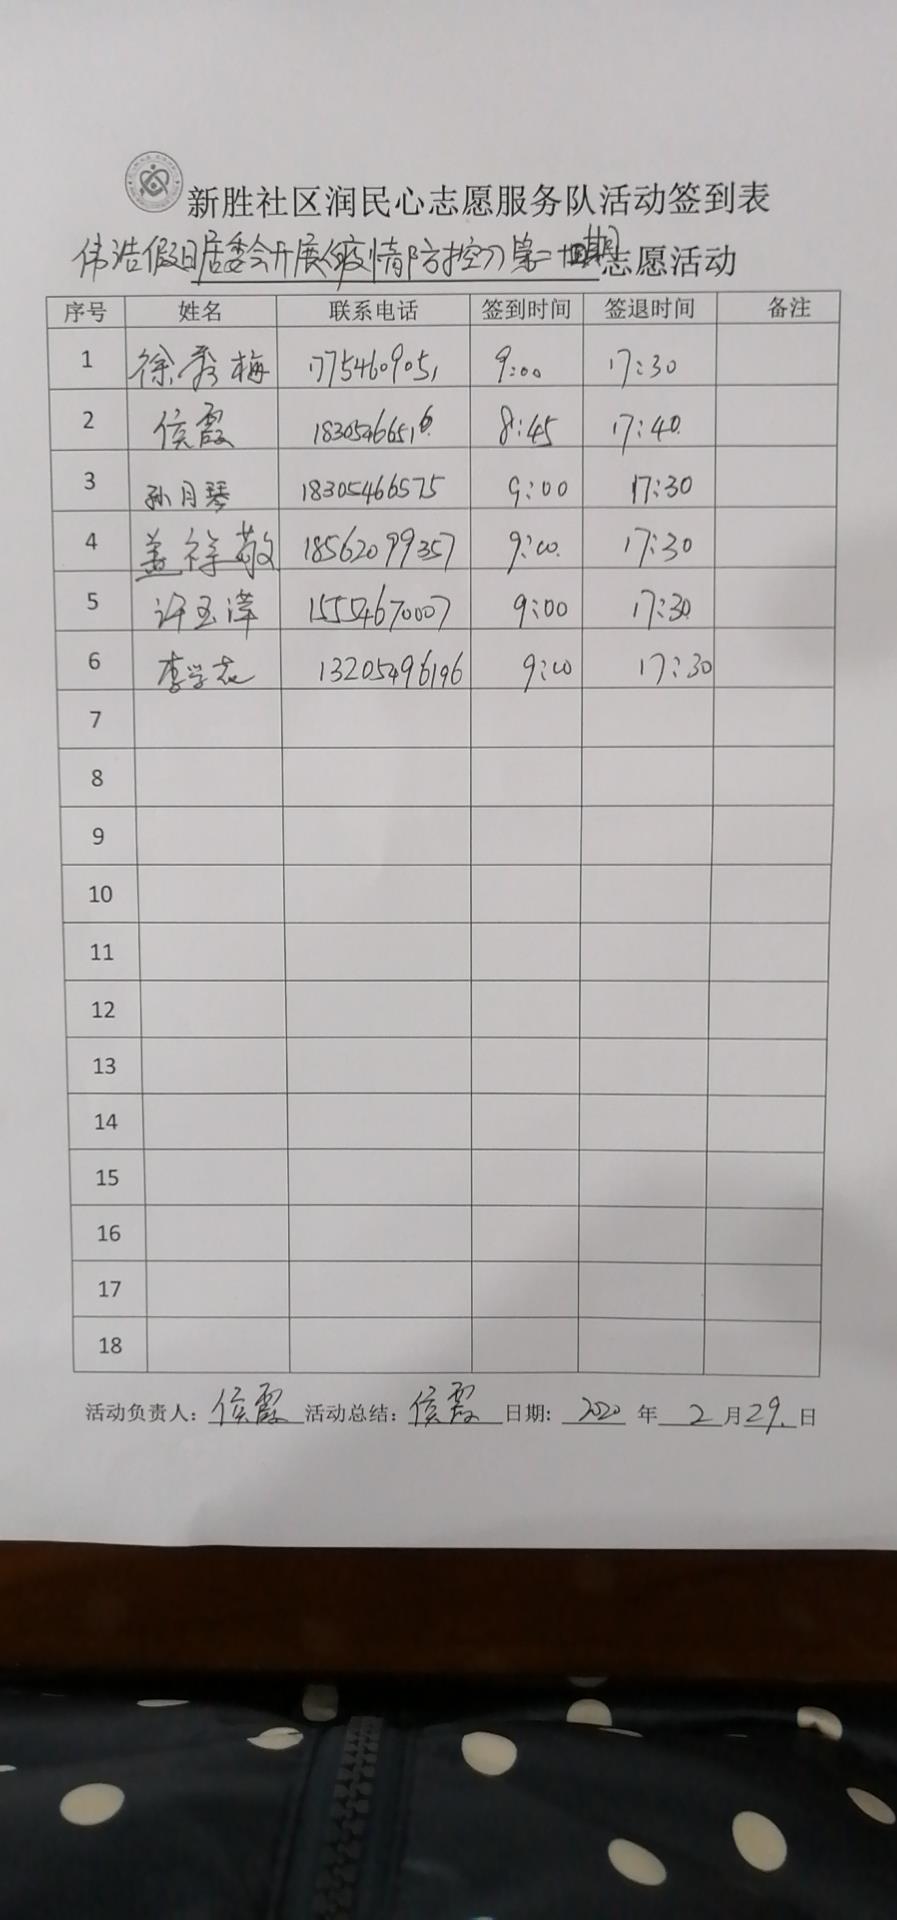 新胜社区润民心志愿服务队活动签到表
伟浩假日居委会开展《疫情防控》第二十四期志愿活动
序号 姓名 联系电话 签到时间 签退时间 备注
1 徐秀梅 17754609051 9:00 17:30
2 侯霞 18305466516 8:45 17:40
3 孙月琴 18305466575 9:00 17:30
4 盖祥敬 18562099357 9:00 17:30
5 许玉萍 15554670007 9:00 17:30
6 李学志 13205496196 9:00 17:30
7
8
9
10
11
12
13
14
15
16
17
18
活动负责人：侯霞 活动总结：侯霞 日期：2020 年 2 月 29 日